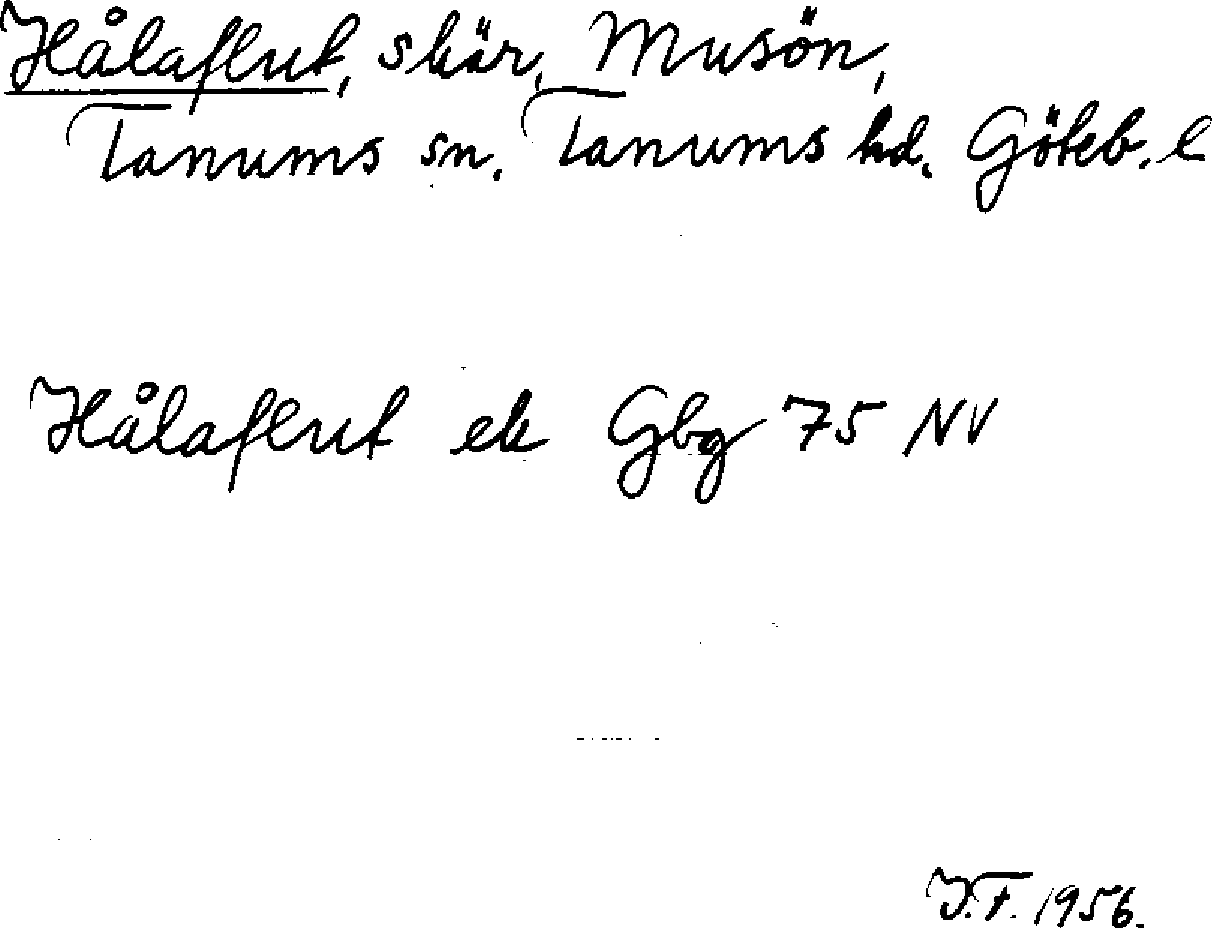 Hålaflut, skär, Musön,
Tanums sn. Tanums hd. Göteb. l
Hålaflut ek Gbg 75 NV
J.F. 1956.